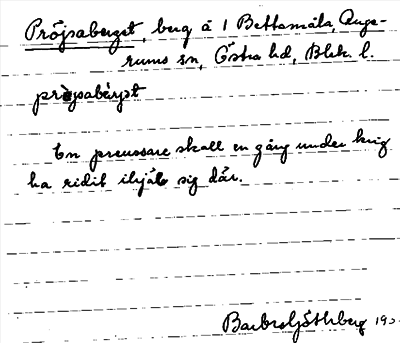 Pröjsaberget, berg å 1 Bettamåla, Auge-
rums sn, Östra hd, Blek. l.
prøjsabæ̀rjst
En preussare skall en gång under krig
ha ridit ihjäl sig där.
Barbro Göthberg 19